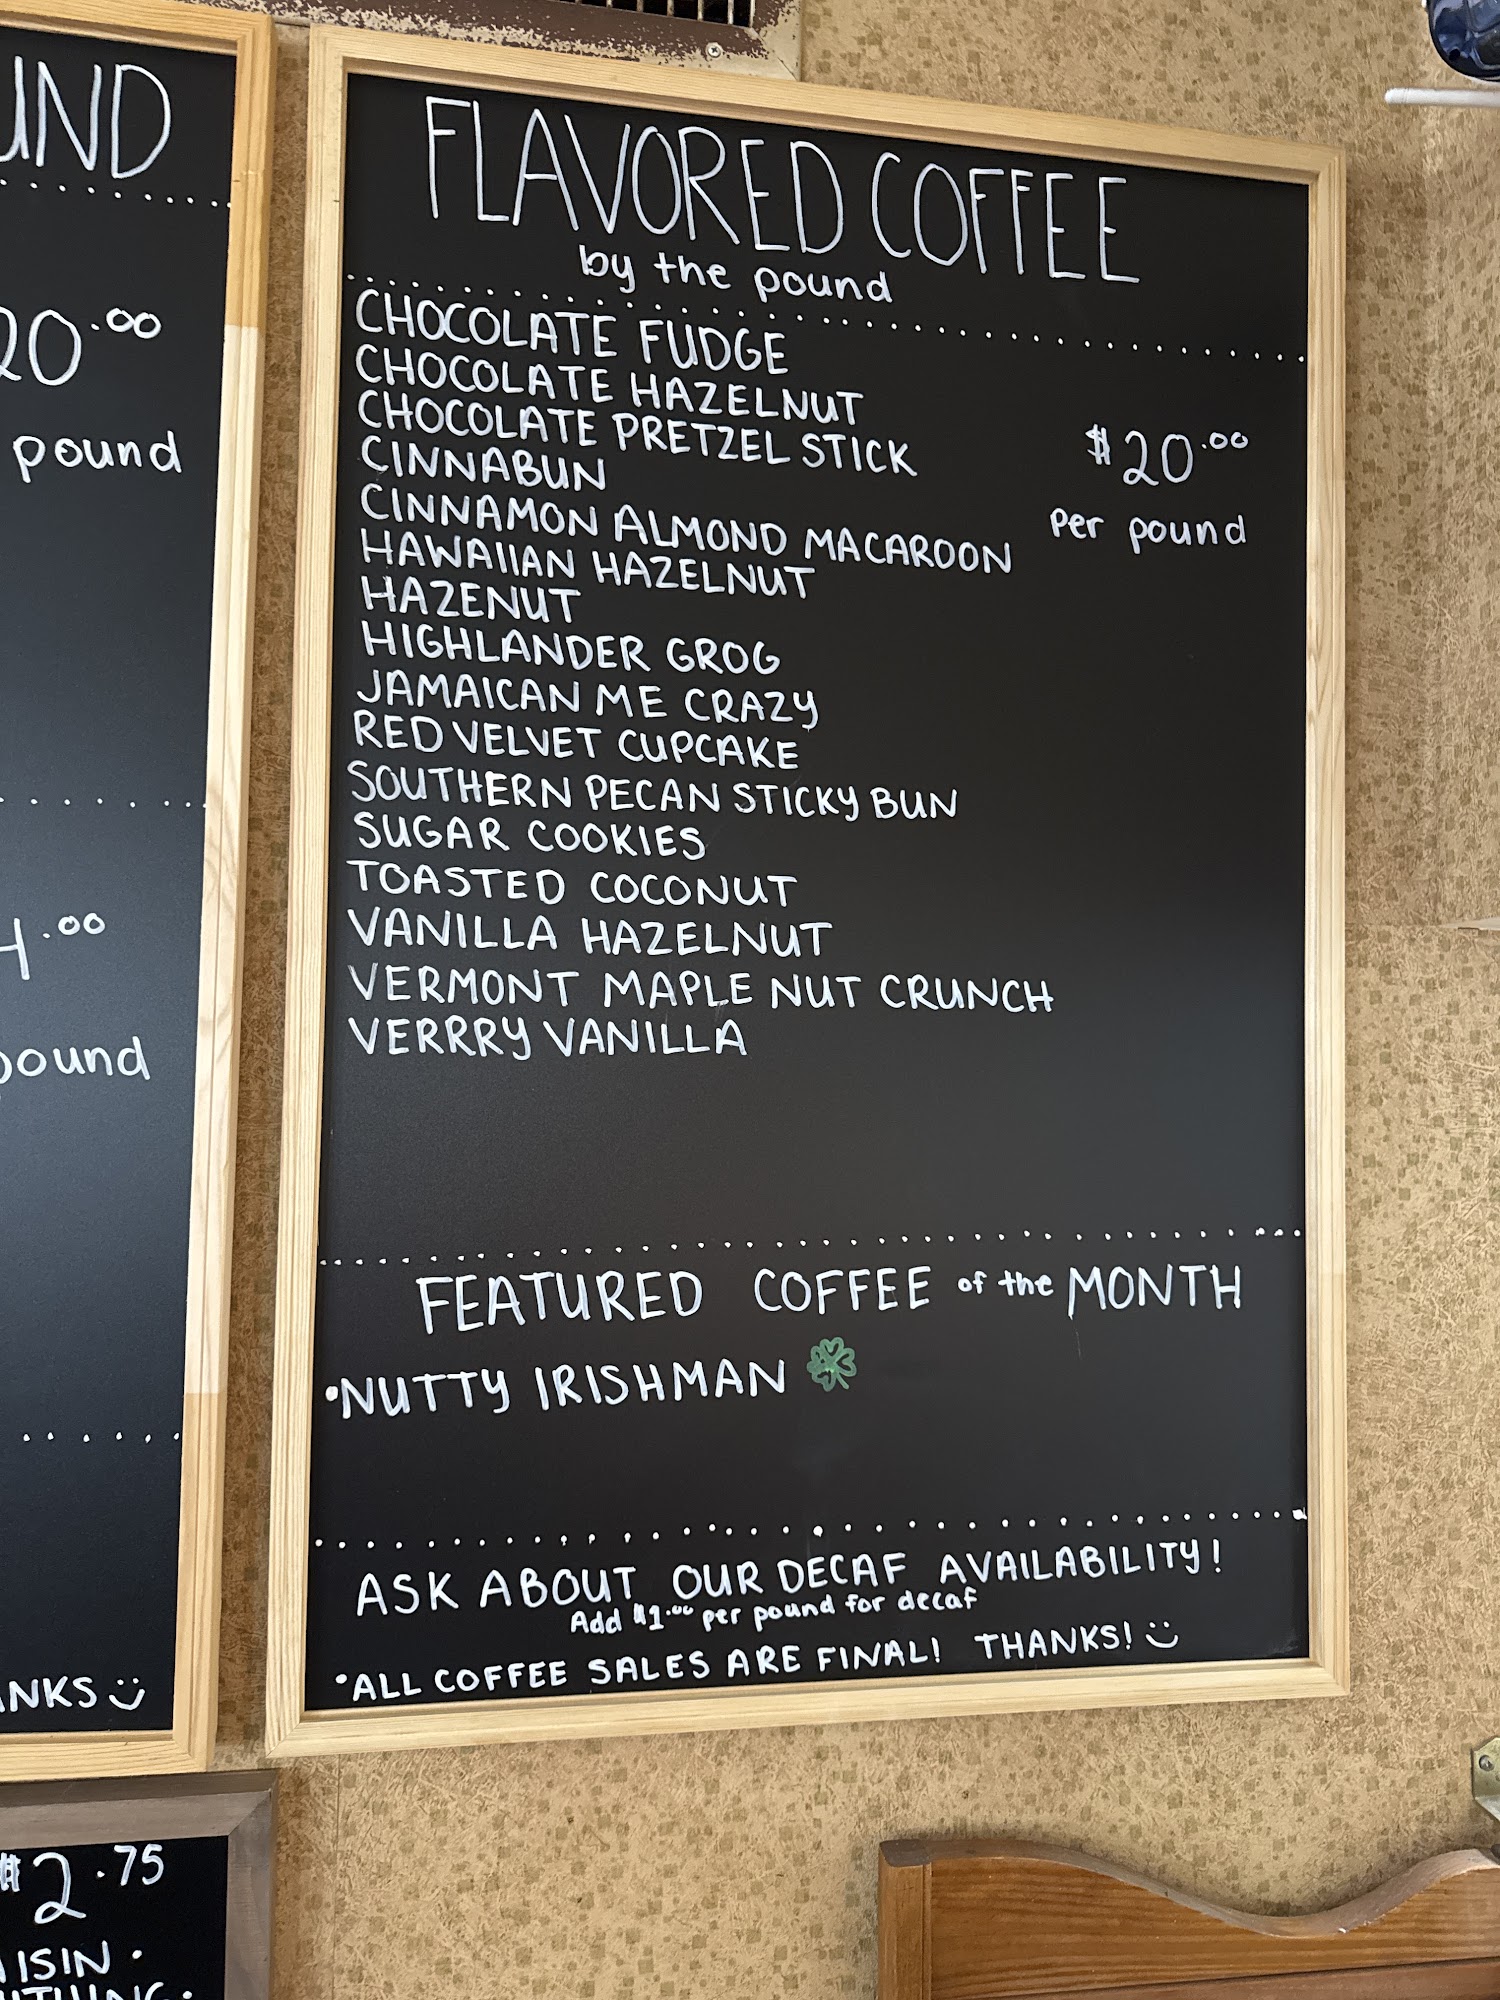 FLAVORED COFFEE
by the pound
CHOCOLATE FUDGE
CHOCOLATE HAZELNUT
CHOCOLATE PRETZEL STICK
CINNABUN
CINNAMON ALMOND MACAROON
HAWAIIAN HAZELNUT
HAZENUT
HIGHLANDER GROG
JAMAICAN ME CRAZY
RED VELVET CUPCAKE
SOUTHERN PECAN STICKY BUN
SUGAR COOKIES
TOASTED COCONUT
VANILLA HAZELNUT
VERMONT MAPLE NUT CRUNCH
VERRRY VANILLA
$20.00
per pound
FEATURED COFFEE of the MONTH
•NUTTY IRISHMAN
ASK ABOUT OUR DECAF AVAILABILITY!
Add $1.00 per pound for decaf
•ALL COFFEE SALES ARE FINAL! THANKS!
UND
20.00
pound
4.00
pound
ANKS
$2.75
AISIN •